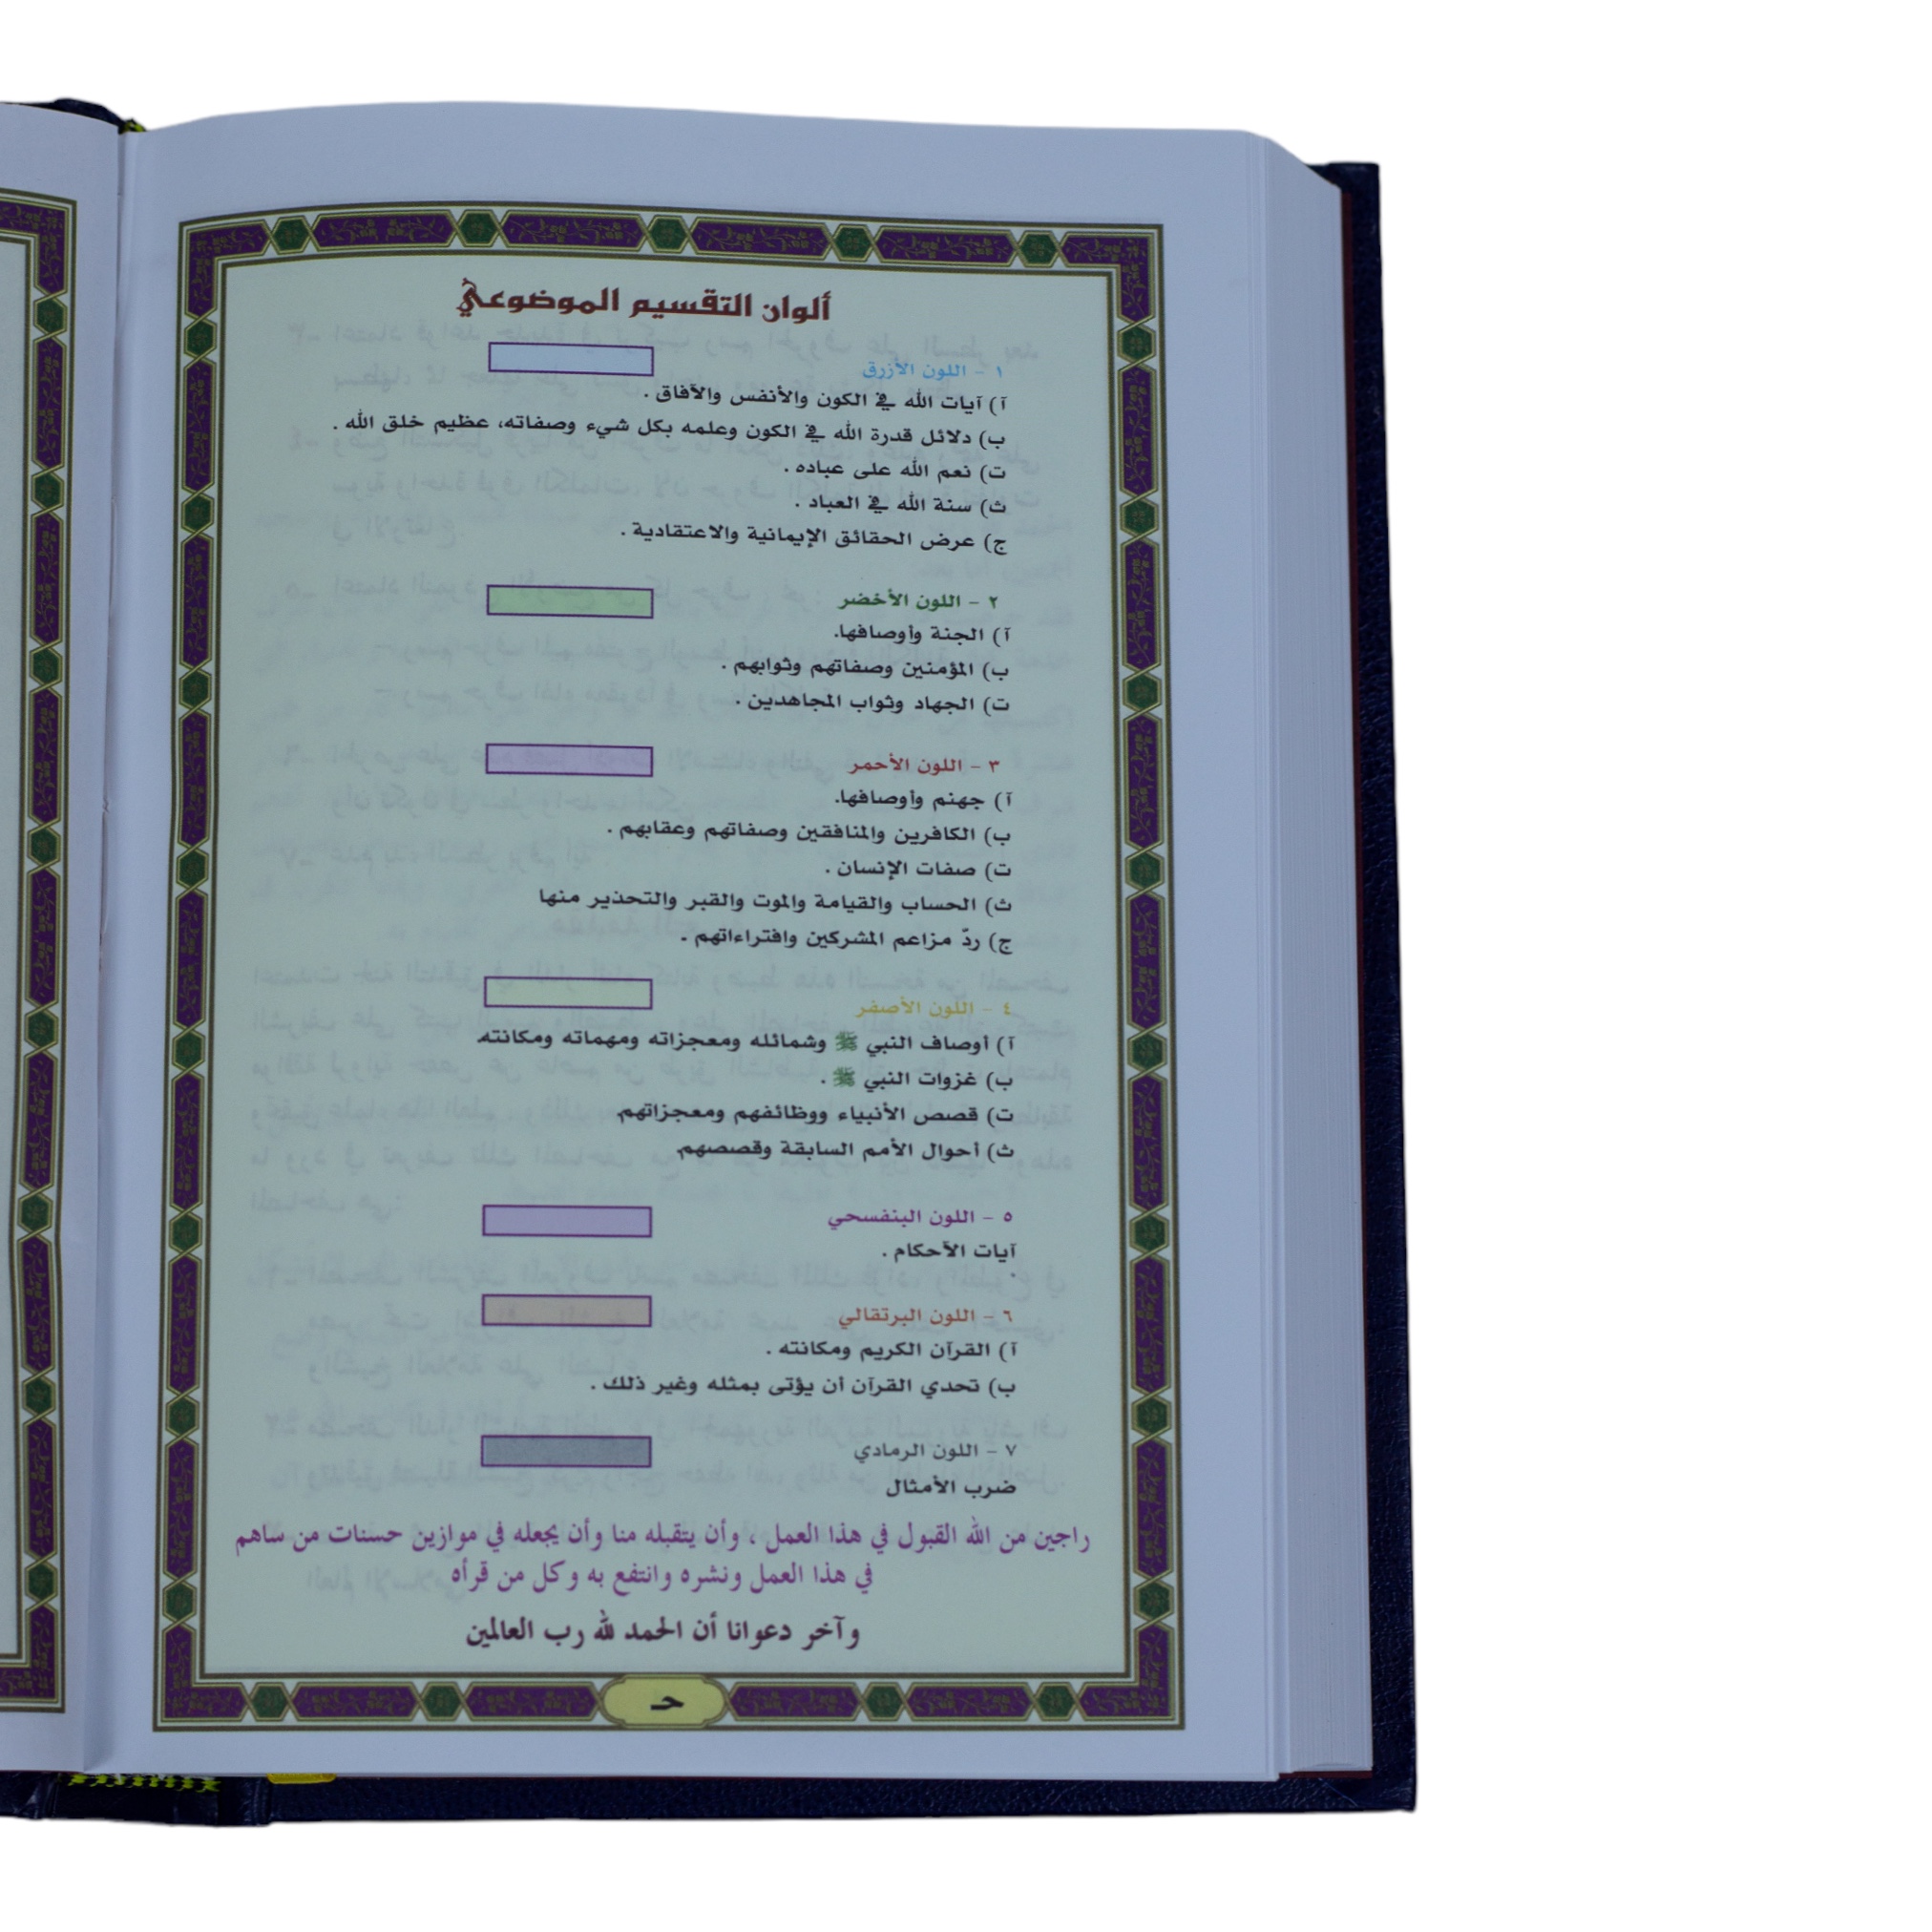 ألوان التقسيم الموضوعي
١ - اللون الأزرق
آ) آيات الله في الكون والأنفس والآفاق .
ب) دلائل قدرة الله في الكون وعلمه بكل شيء وصفاته، عظيم خلق الله .
ت) نعم الله على عباده .
ث) سنة الله في العباد .
ج) عرض الحقائق الإيمانية والاعتقادية .
٢ - اللون الأخضر
آ) الجنة وأوصافها.
ب) المؤمنين وصفاتهم وثوابهم .
ت) الجهاد وثواب المجاهدين .
٣ - اللون الأحمر
آ) جهنم وأوصافها.
ب) الكافرين والمنافقين وصفاتهم وعقابهم .
ت) صفات الإنسان .
ث) الحساب والقيامة والموت والقبر والتحذير منها
ج) ردّ مزاعم المشركين وافتراءاتهم .
٤ - اللون الأصفر
آ) أوصاف النبي ﷺ وشمائله ومعجزاته ومهماته ومكانته.
ب) غزوات النبي ﷺ .
ت) قصص الأنبياء ووظائفهم ومعجزاتهم
ث) أحوال الأمم السابقة وقصصهم
٥ - اللون البنفسجي
آيات الأحكام .
٦ - اللون البرتقالي
آ) القرآن الكريم ومكانته .
ب) تحدي القرآن أن يؤتى بمثله وغير ذلك .
٧ - اللون الرمادي
ضرب الأمثال
راجين من الله القبول في هذا العمل ، وأن يتقبله منا وأن يجعله في موازين حسنات من ساهم
في هذا العمل ونشره وانتفع به وكل من قرأه
وآخر دعوانا أن الحمد لله رب العالمين
حـ